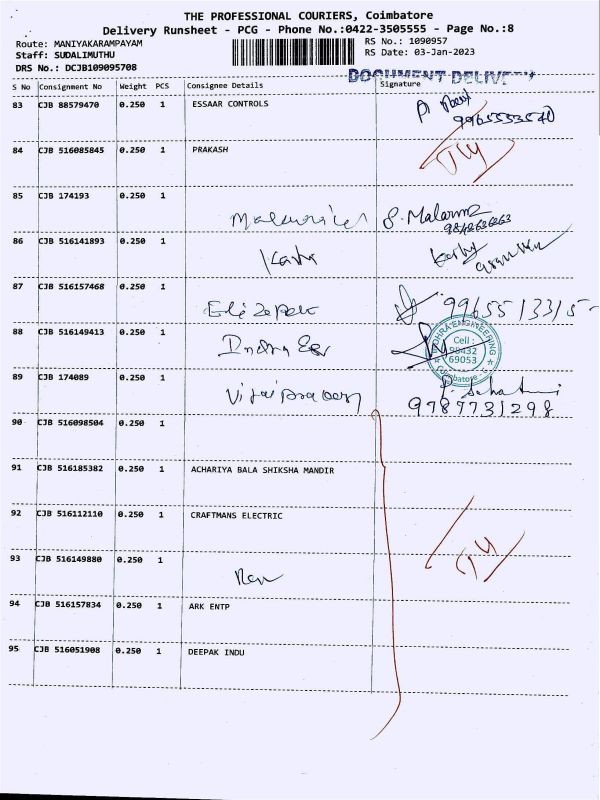 THE PROFESSIONAL COURIERS, Coimbatore
Delivery Runsheet - PCG - Phone No.:0422-3505555 - Page No.:8
Route: MANIYAKARAMPAYAM
RS No.: 1090957
Staff: SUDALIMUTHU
RS Date: 03-Jan-2023
DRS No.: DCJB109095708
DOCUMENT DELIVERY
S No Consignment No Weight PCS Consignee Details Signature
83 CJB 88579470 0.250 1 ESSAAR CONTROLS
84 CJB 516085845 0.250 1 PRAKASH
85 CJB 174193 0.250 1
S. Malarviz
9842636363
86 CJB 516141893 0.250 1
87 CJB 516157468 0.250 1
9965513315
88 CJB 516149413 0.250 1
Indra
Cell :
98432
69053
Coimbatore
89 CJB 174089 0.250 1
9789731298
90 CJB 516098504 0.250 1
91 CJB 516185382 0.250 1 ACHARIYA BALA SHIKSHA MANDIR
92 CJB 516112110 0.250 1 CRAFTMANS ELECTRIC
93 CJB 516149880 0.250 1
94 CJB 516157834 0.250 1 ARK ENTP
95 CJB 516051908 0.250 1 DEEPAK INDU